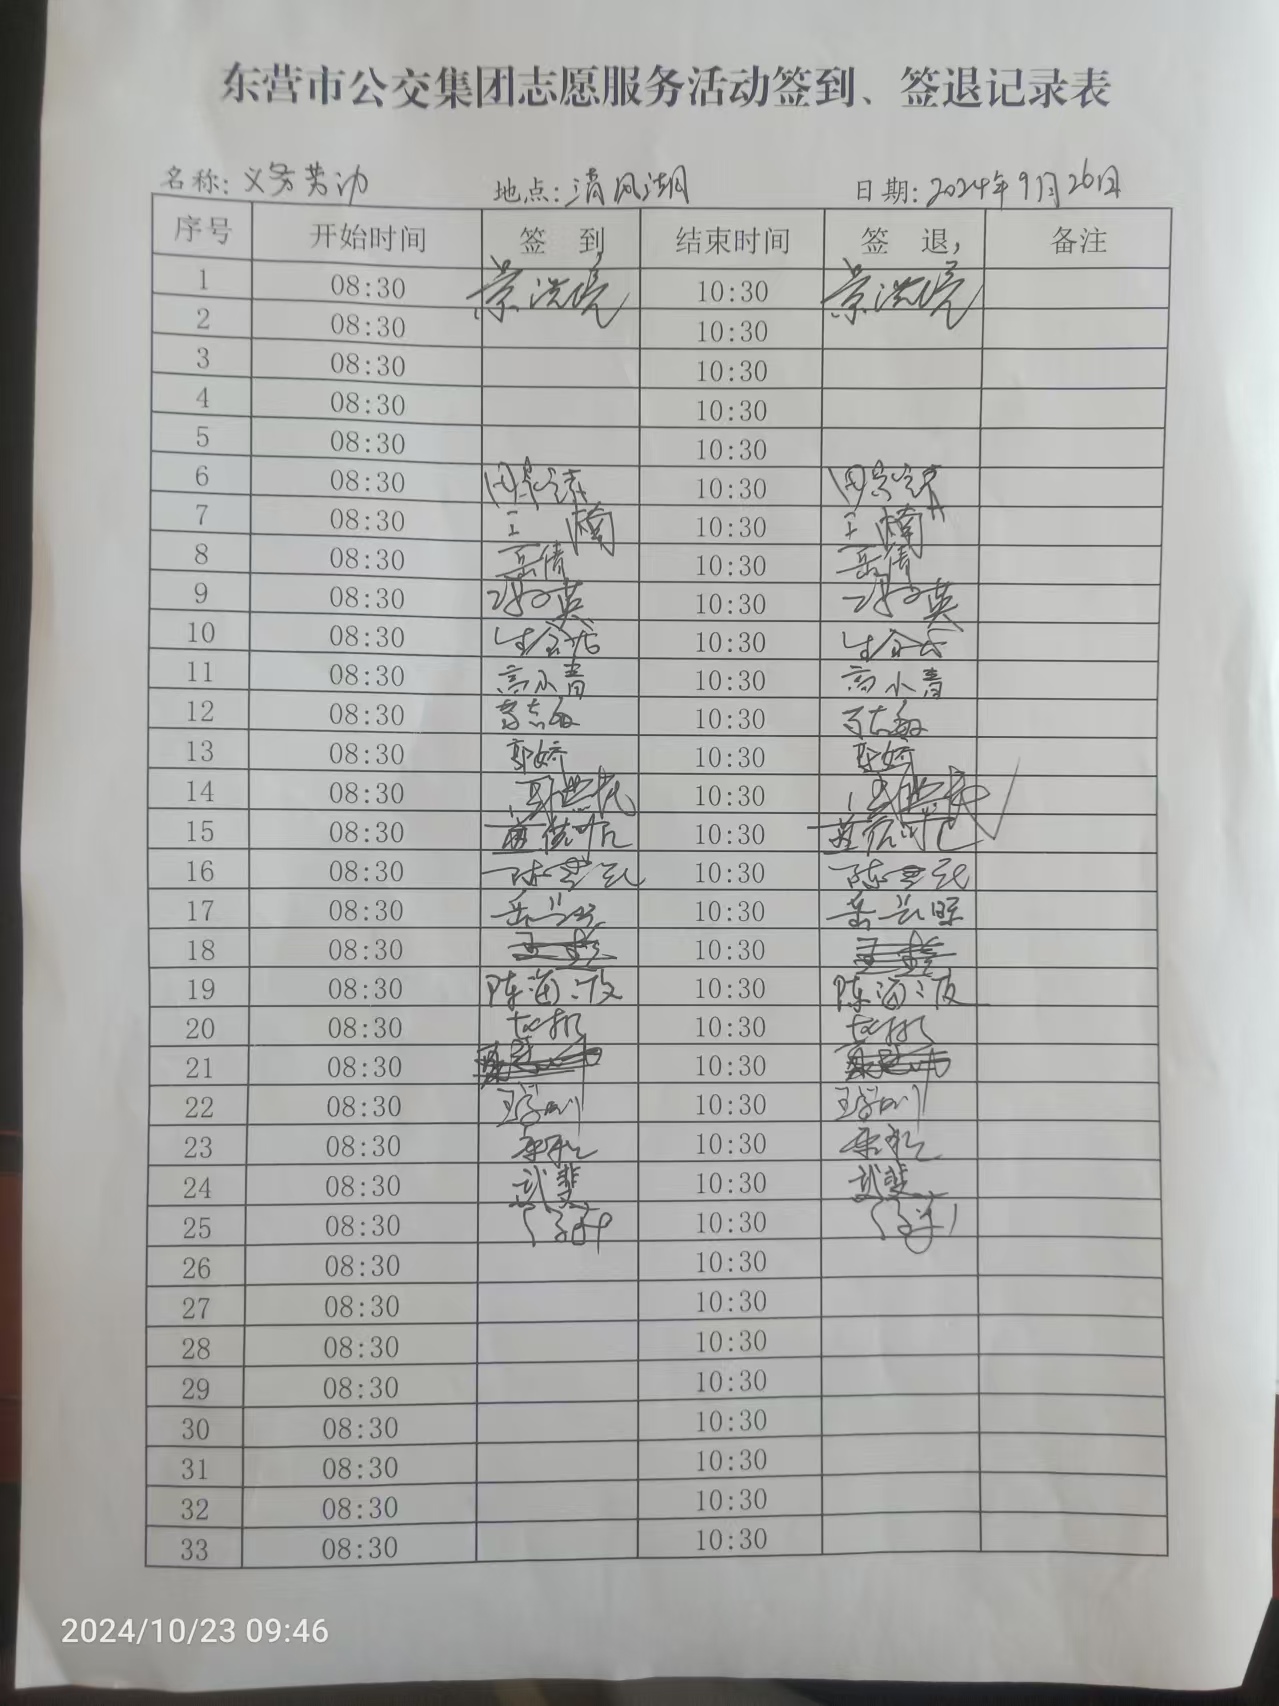 东营市公交集团志愿服务活动签到、签退记录表
名称: 义务劳动 地点: 清风湖 日期: 2024年9月26日
序号 开始时间 签 到 结束时间 签 退, 备注
1 08:30 10:30
2 08:30 10:30
3 08:30 10:30
4 08:30 10:30
5 08:30 10:30
6 08:30 10:30
7 08:30 王 楠 10:30 王 楠
8 08:30 岳倩 10:30 岳倩
9 08:30 10:30
10 08:30 10:30
11 08:30 高小青 10:30 高小青
12 08:30 10:30
13 08:30 郭娇 10:30 郭娇
14 08:30 10:30
15 08:30 10:30
16 08:30 10:30
17 08:30 10:30
18 08:30 10:30
19 08:30 陈海波 10:30 陈海波
20 08:30 10:30
21 08:30 10:30
22 08:30 10:30
23 08:30 10:30
24 08:30 武斐 10:30 武斐
25 08:30 10:30
26 08:30 10:30
27 08:30 10:30
28 08:30 10:30
29 08:30 10:30
30 08:30 10:30
31 08:30 10:30
32 08:30 10:30
33 08:30 10:30
2024/10/23 09:46